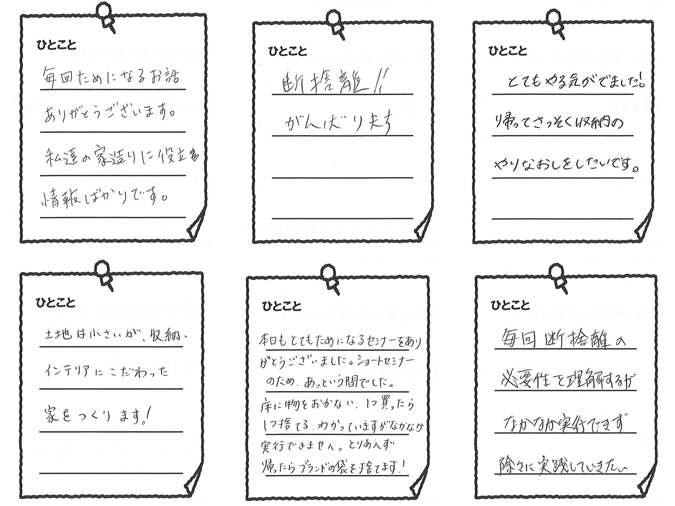 ひとこと
毎回ためになるお話
ありがとうございます。
私達の家造りに役立つ
情報ばかりです。
ひとこと
断捨離!!
がんばります
ひとこと
とてもやる気がでました!
帰ってさっそく収納の
やりなおしをしたいです。
ひとこと
土地は小さいが、収納、
インテリアにこだわった
家をつくります!
ひとこと
本日もとてもためになるセミナーをあり
がとうございました。ショートセミナー
のため、あっという間でした。
床に物をおかない、1つ買ったら
1つ捨てる、わかっていますがなかなか
実行できません。とりあえず
帰ったらブランドの袋を捨てます!
ひとこと
毎回断捨離の
必要性を理解するが
なかなか実行できず
除々に実践していきたい